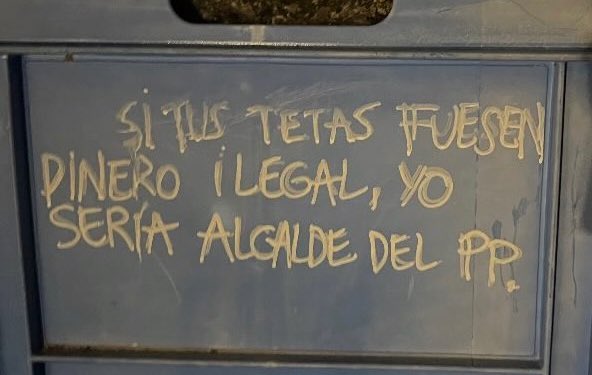 Si TUS TETAS FUESEN
DINERO iLEGAL, YO
SERÍA ALCALDE DEL PP.